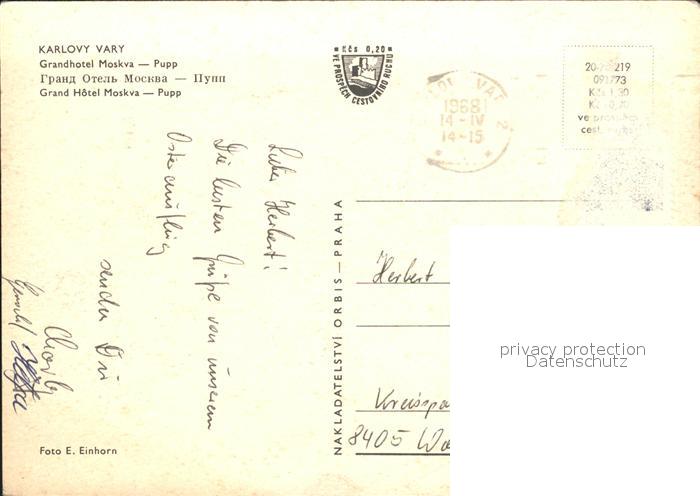 KARLOVY VARY
Grandhotel Moskva — Pupp
Гранд Отель Москва — Пупп
Grand Hôtel Moskva — Pupp
Kčs 0,20
VE PROSPĚCH CESTOVNÍHO RUCHU
VARY 2
1968
14-IV
14-15
219
Kčs 1,30
ve prospěch
cest.
Lieber Herbert!
Die besten Grüße von unserem
Osterausflug
senden Dir
Charly
NAKLADATELSTVÍ ORBIS — PRAHA
Herbert
8405
privacy protection
Datenschutz
Foto E. Einhorn